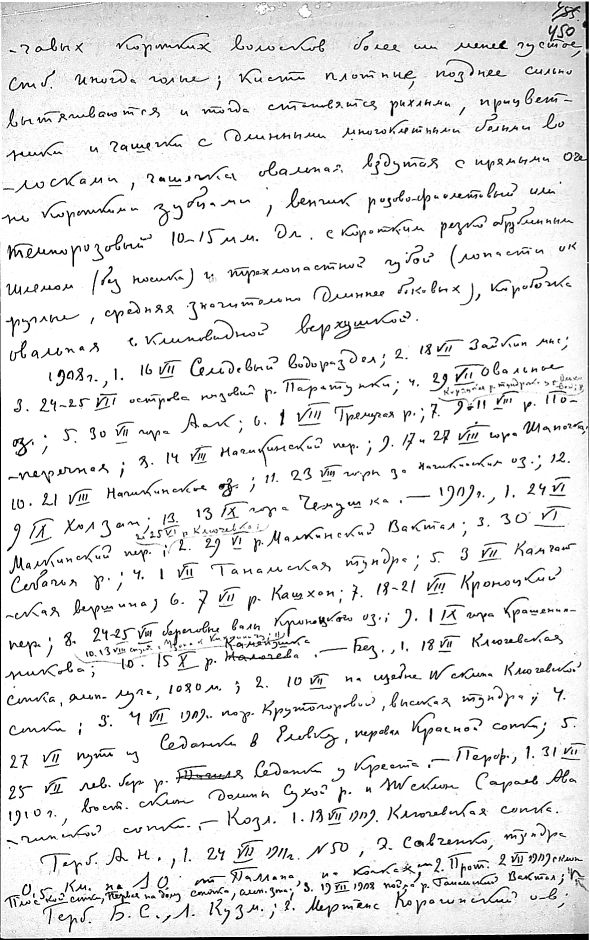 450
-чавых коротких волосков более или менее густое,
стб. иногда голые; кисти плотные, позднее сильно
вытягиваются и тогда становятся рыхлыми, прицвет-
ники и чашечки с длинными многоклетными белыми во
-лосками, чашечка овальная вздутая с прямыми
не короткими зубцами; венчик розово-фиолетовый или
темнорозовый 10-15 мм. дл. с коротким резко обрубленным
шлемом (без носика) и трехлопастной губой (лопасти ок
руглые, средняя значительно длиннее боковых), коробочка
овальная с клиновидной верхушкой.
1908 г., 1. 16 VII Сельдевый водораздел; 2. 18 VII Зайкин мыс;
3. 24-25 VII острова низовий р. Паратунки; 4. 29 VII Овальное
оз.; 5. 30 VII гора Аак; 6. 1 VIII Гремучая р.; 7. 9-11 VIII р. По-
-перечная; 8. 14 VIII Начикинский пер.; 9. 17 и 27 VIII гора Шапочка;
10. 21 VIII Начикинское оз.; 11. 23 VIII горы за Начикинским оз.; 12.
9 IX Холзан; 13. 13 IX гора Чемушка. — 1909 г., 1. 24 VI
2а 25 VI р. Ключевой
Малкинский пер.; 2. 29 VI р. Малкинский Вактал; 3. 30 VI
Собачья р.; 4. 1 VII Ганальская тундра; 5. 3 VII Камчат
-ская вершина; 6. 7 VII р. Кашхан; 7. 18-21 VIII Кроноцкий
пер.; 8. 24-25 VIII береговые валы Кроноцкого оз.; 9. 1 IX гора Крашенин-
никова; 10. 15 X р. Каменушка. — Без., 1. 18 VII Ключевская
сопка, альп. луга, 1080 м.; 2. 10 VII на щебне W склона Ключевской
сопки; 3. 4 VII 1909 г. подъ Крутогоровый, высокая тундра; 4.
27 VII путь из Седанки в Еловку, перевал Красной сопки; 5.
25 VII лев. бер. р. Седанки у Креста. — Перф., 1. 31 VII
1910 г., вост. склон долины Сухой р. и W склон Сараев Ава
-чинской сопки. — Козл. 1. 13 VII 1909. Ключевская сопка.
Герб. А. Н., 1. 24 VII 1911 г. N 50, Э. Савченко, тундра
0,5 км. на SO от Паллана, на кочках; 2. Прот. 2 VII 1909 склон
Плоской сопки, 3. 19 VII 1908 р. Ганальский Вактал;
Герб. Б. С., 1. Кузм.; 2. Мертенс Карагинский о-в,